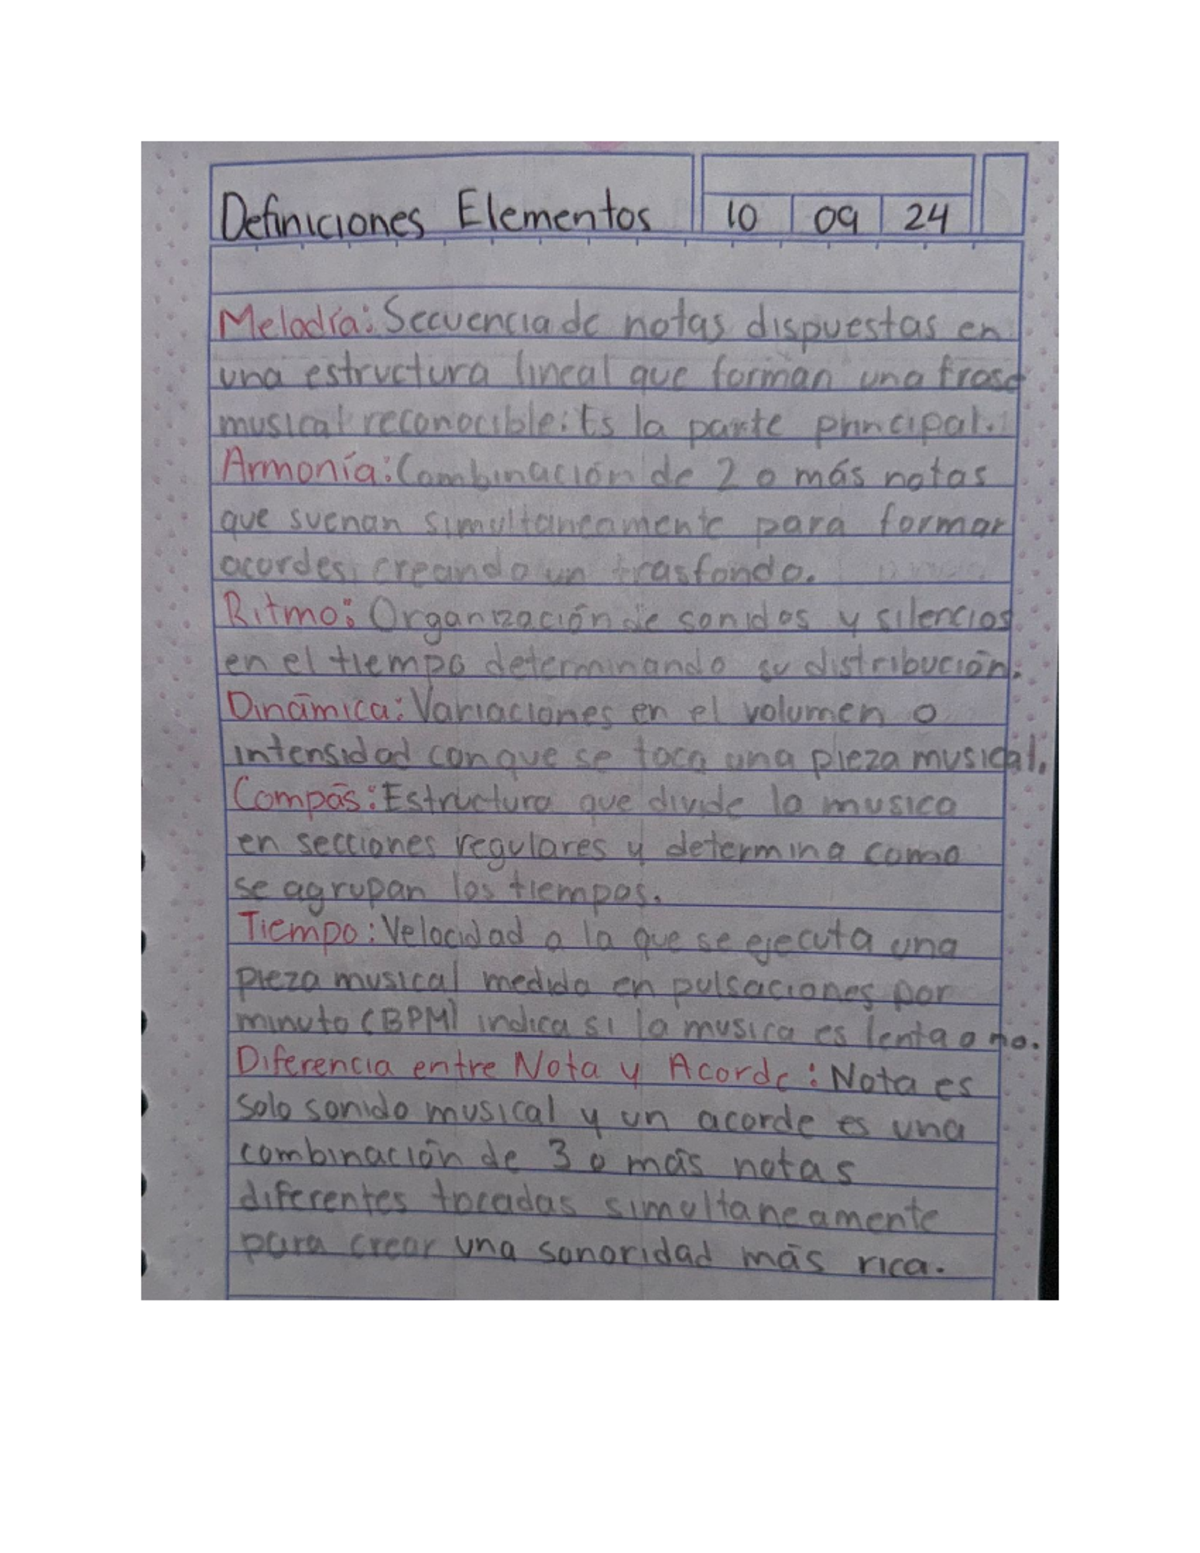 Definiciones Elementos
10 09 24
Melodía: Secuencia de notas dispuestas en
una estructura lineal que forman una frase
musical reconocible. Es la parte principal.
Armonía: Combinación de 2 o más notas
que suenan simultaneamente para formar
acordes, creando un trasfondo.
Ritmo: Organización de sonidos y silencios
en el tiempo determinando su distribución.
Dinámica: Variaciones en el volumen o
intensidad con que se toca una pieza musical.
Compás: Estructura que divide la musica
en secciones regulares y determina como
se agrupan los tiempos.
Tiempo: Velocidad a la que se ejecuta una
pieza musical medida en pulsaciones por
minuto (BPM) indica si la musica es lenta o no.
Diferencia entre Nota y Acorde: Nota es
solo sonido musical y un acorde es una
combinación de 3 o más notas
diferentes tocadas simultaneamente
para crear una sonoridad más rica.